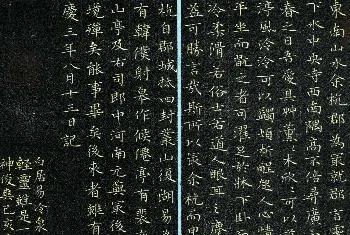 東南山水余杭郡爲最就郡言靈
下水中央寺西南隅高不倍尋廣
春之日吾愛其草薰木欣可以
渟風泠泠可以蠲煩析酲起人心情
平坐而翫之者可濯足於牀下臥
泠柔滑若俗士若道人眼耳之塵
盍可勝言哉斯所以冣余杭而甲
自郡城抵四封叢山復湖易爲
有韓僕射皋作候僊亭有裴
山亭及右司郎中河南元藇冣後
境殫矣能事畢矣後來者雖有
慶三年八月十三日記
白居易冷泉
輕靈雖是一
神俊癸亥